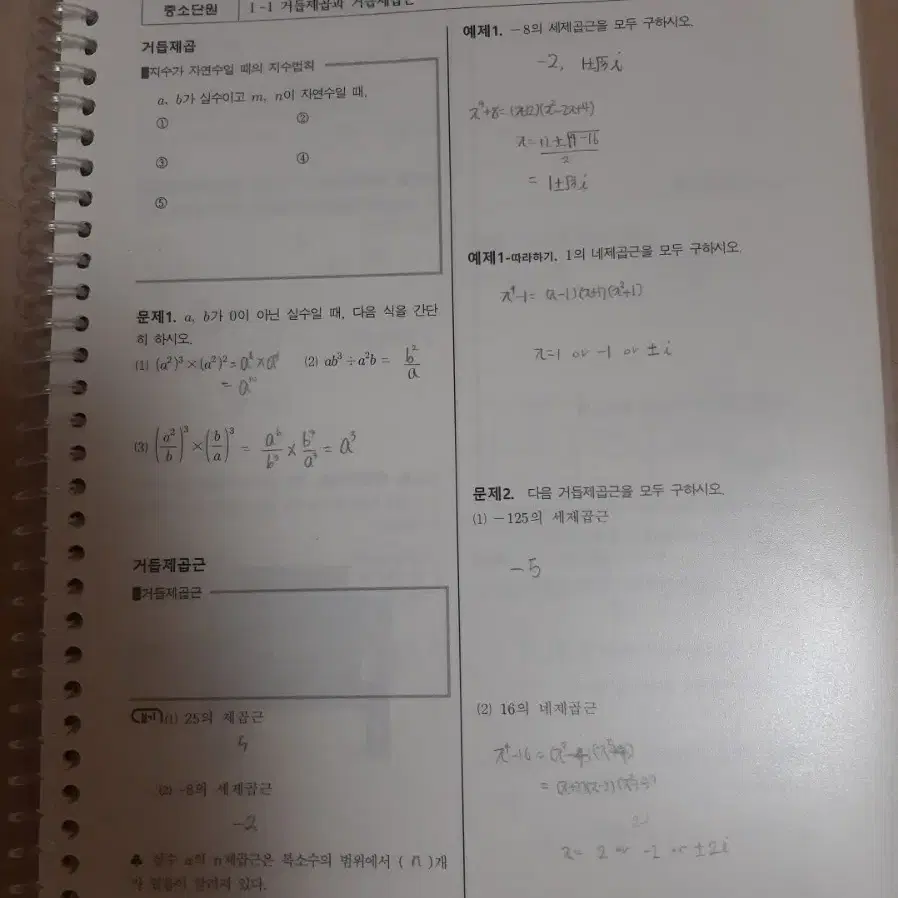 중소단원
Ⅰ-1 거듭제곱과 거듭제곱근
거듭제곱
지수가 자연수일 때의 지수법칙
a, b가 실수이고 m, n이 자연수일 때,
① ②
③ ④
⑤
문제1. a, b가 0이 아닌 실수일 때, 다음 식을 간단
히 하시오.
(1) (a²)³×(a²)²= (2) ab³÷a²b = b²/a
(3) (a²/b)³×(b/a)³ = a⁶/b³ × b³/a³ = a³
거듭제곱근
거듭제곱근
(1) 25의 제곱근
5
(2) -8의 세제곱근
-2
♣ 실수 a의 n제곱근은 복소수의 범위에서 ( n )개
가 있음이 알려져 있다.
예제1. -8의 세제곱근을 모두 구하시오.
-2, 1±√3 i
= 1±√3 i
예제1-따라하기. 1의 네제곱근을 모두 구하시오.
x⁴-1= (x-1)(x+1)(x²+1)
x=1 or -1 or ±i
문제2. 다음 거듭제곱근을 모두 구하시오.
(1) -125의 세제곱근
-5
(2) 16의 네제곱근
x= 2 or -2 or ±2i